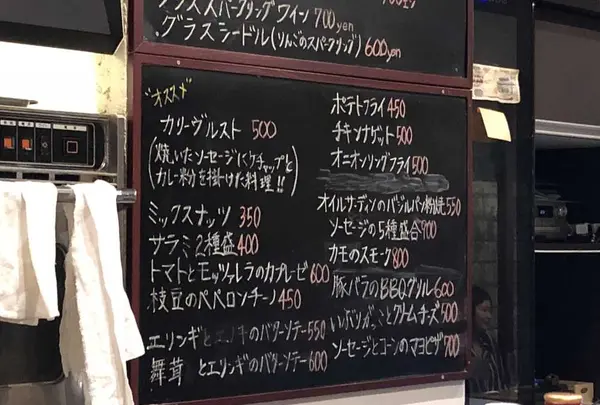 グラススパークリングワイン 700yen
・グラスシードル(りんごのスパークリング) 600yen
"オススメ"
カリーヴルスト 500
(焼いたソーセージにケチャップと
カレー粉を掛けた料理!!)
ミックスナッツ 350
サラミ2種盛 400
トマトとモッツァレラのカプレーゼ 600
枝豆のペペロンチーノ 450
エリンギとエノキのバターソテー 550
舞茸 とエリンギのバターソテー 600
ポテトフライ 450
チキンナゲット 500
オニオンリングフライ 500
オイルサーディンのバジルパン粉焼 550
ソーセージの5種盛合 900
カモのスモーク 800
豚バラのBBQグリル 600
いぶりがっことクリームチーズ 500
ソーセージとコーンのマヨピザ 700